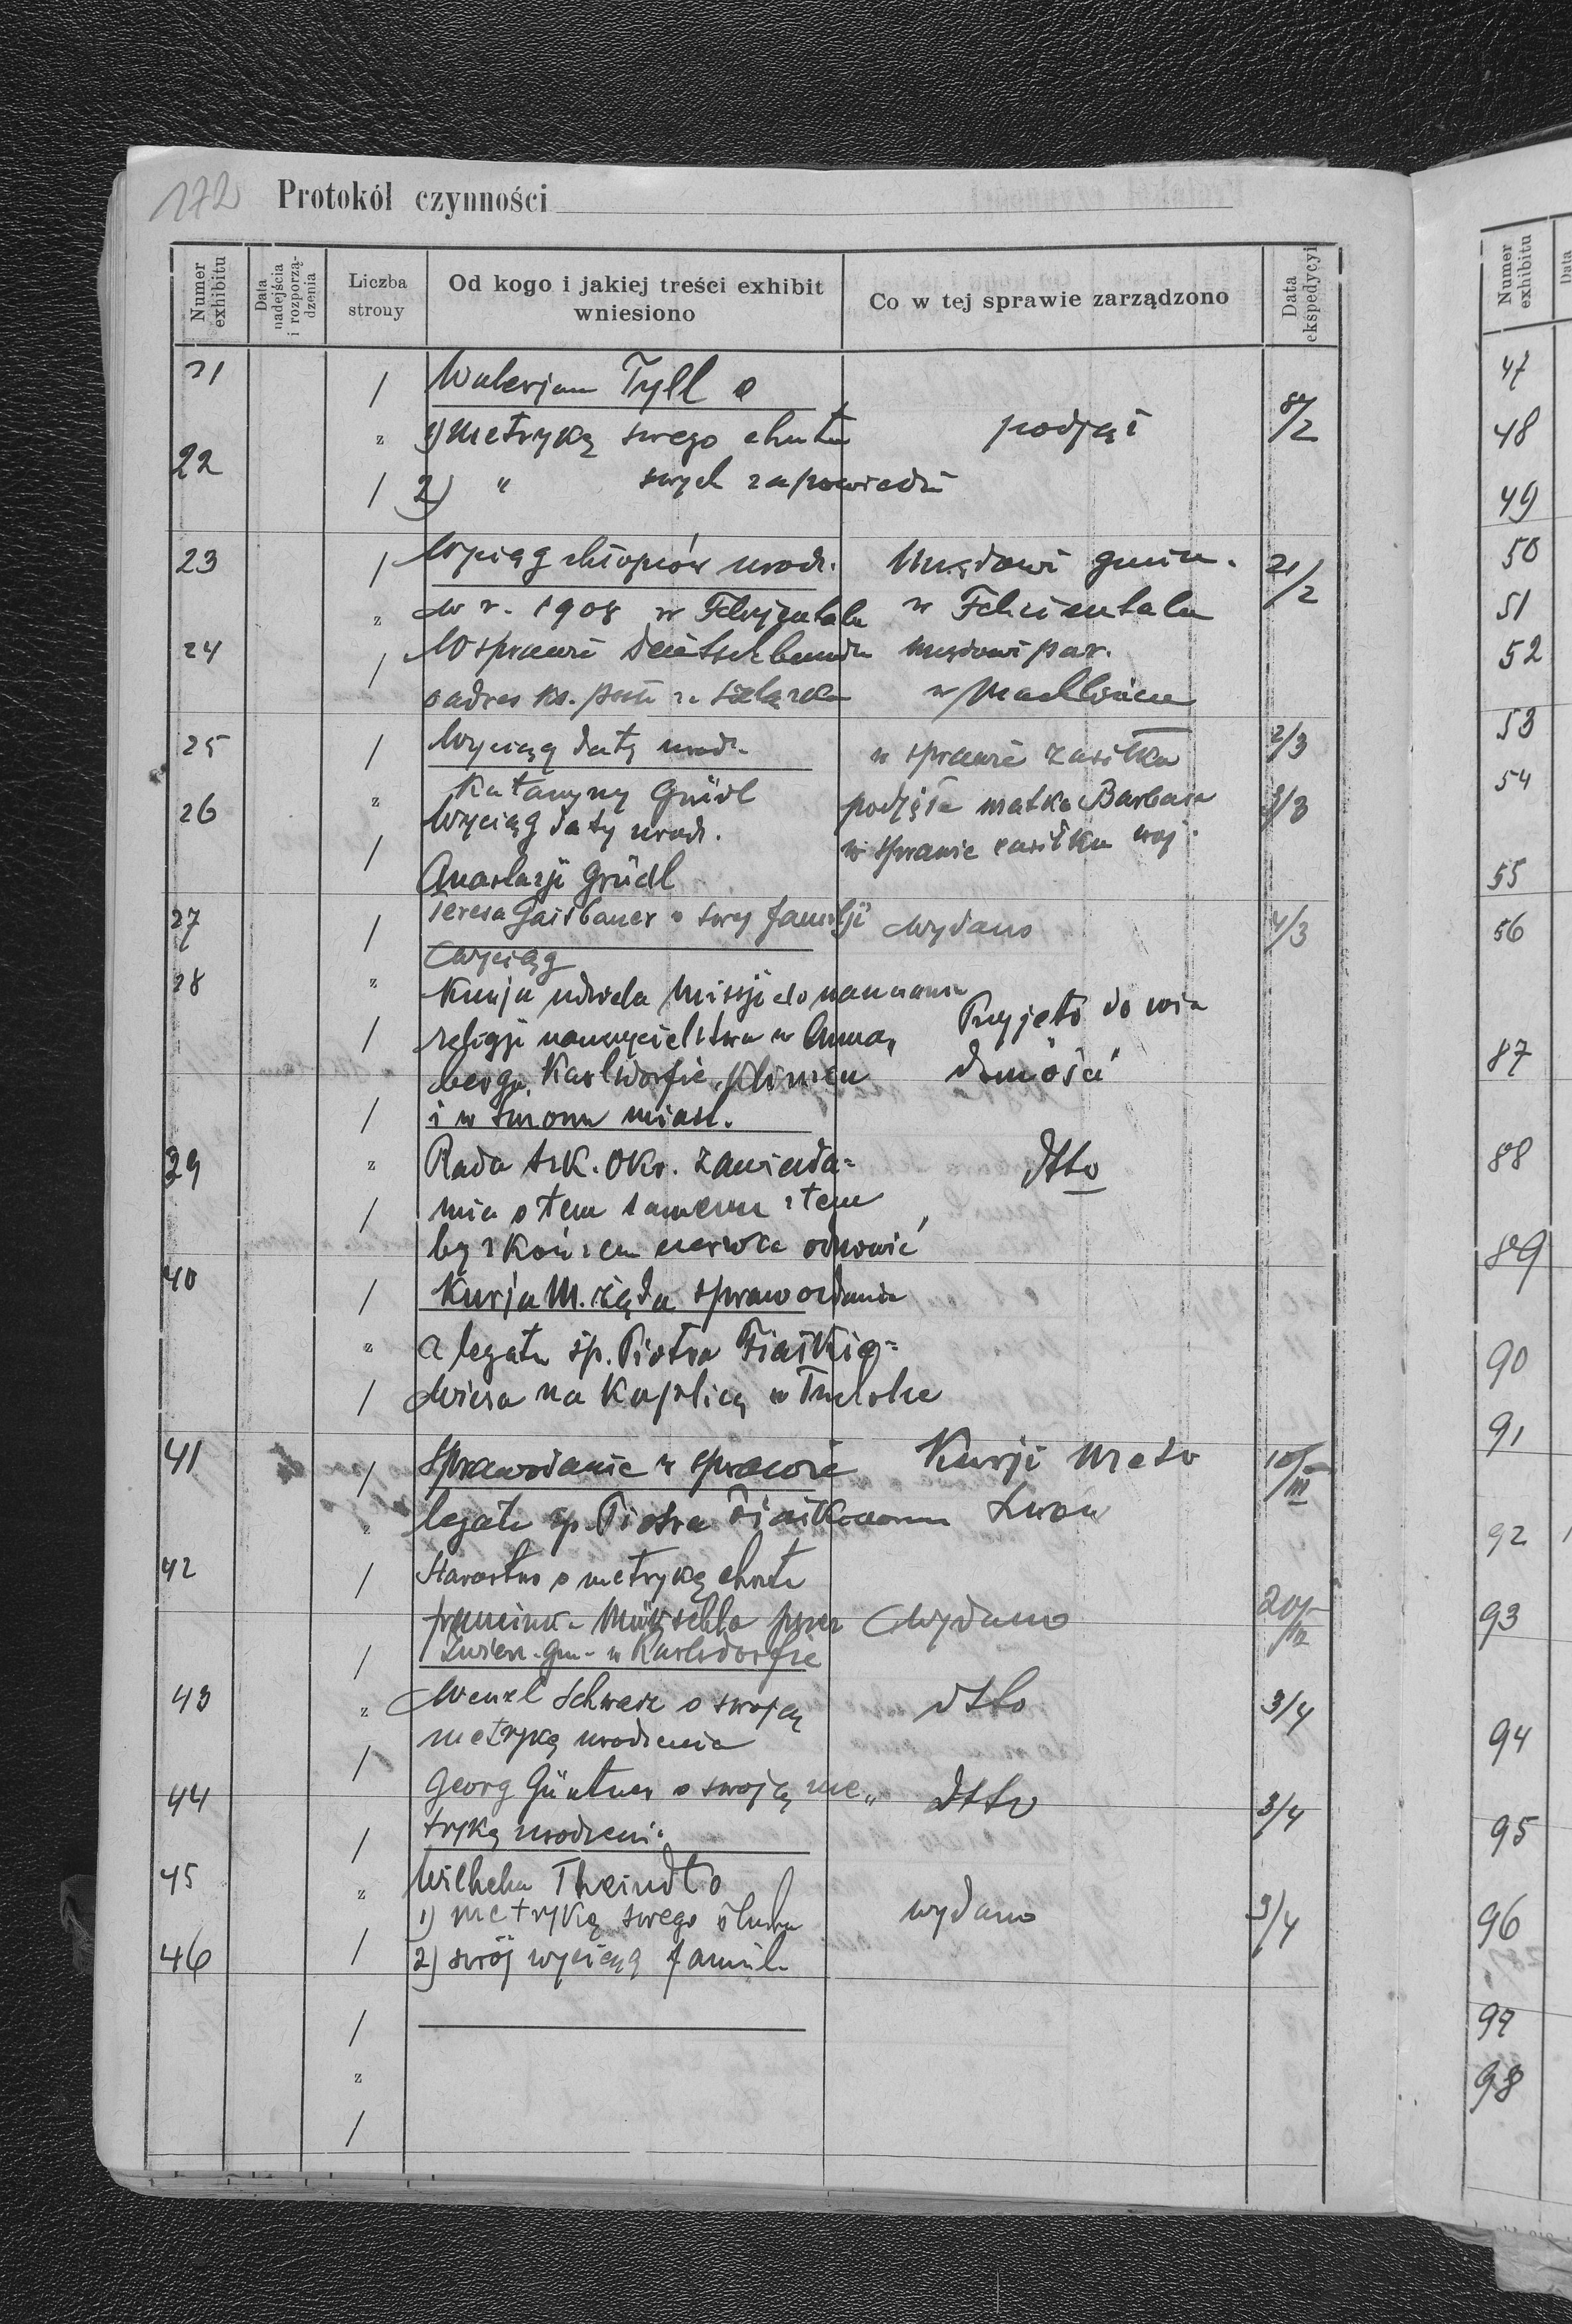 172 Protokół czynności
Numer exhibitu
Data nadejścia i rozporzą-dzenia
Liczba strony
Od kogo i jakiej treści exhibit wniesiono
Co w tej sprawie zarządzono
Data ekspedycyi
Numer exhibitu
Data
21 / Walerjan Tyll o
" 1) metrykę swego chrztu podjął 8/2
22 / 2) " swych zapowiedzi
23 / Wyciąg chłopców urodz. Urzędowi gmin. 21/2
" w r. 1908 w Felizjentalu w Felicientalu
24 / W sprawie par.
o adres ks. w
25 / Wyciąg daty urodz. w sprawie zasiłku 2/3
" Katarzyny Gründl podjęła matka Barbara 3/3
26 Wyciąg daty urodz. w sprawie zasiłku woj.
/ Anastazji Gründl
27 / Teresa Gaisbauer o swej familji wydano 4/3
wyciąg
28 " Kurja udziela misyji do nauczania
/ religji nauczycielstwa w Anna„ Przyjęto do wia
bergu, Karlsdorfie, domości
/ i w miast.
39 " Rada szk. Okr. zawiada= dtto
/ mia o tem samem z tem
by z końcem czerwca odnowić
40 / Kurja M. żąda sprawozdania
" z legatu śp. Piotra
/ na kaplicę w
41 / Sprawozdanie w sprawie Kurji Metr 10/III
" legatu śp. Piotra Lwów
42 / Starostwo o metrykę chrztu
przez wydano 20/
/ Zwierz. gm. w Karlsdorfie
43 " Wenzl Schwarz o swoją dtto 3/4
/ metrykę urodzenia
44 Georg Güntner o swoją me„ dtto 3/4
/ trykę urodzeni.
45 " Wilhelm
1) metrykę swego ślubu wydano 3/4
46 / 2) swój wyciąg famil.
/
"
/
47
48
49
50
51
52
53
54
55
56
87
88
89
90
91
92
93
94
95
96
97
98